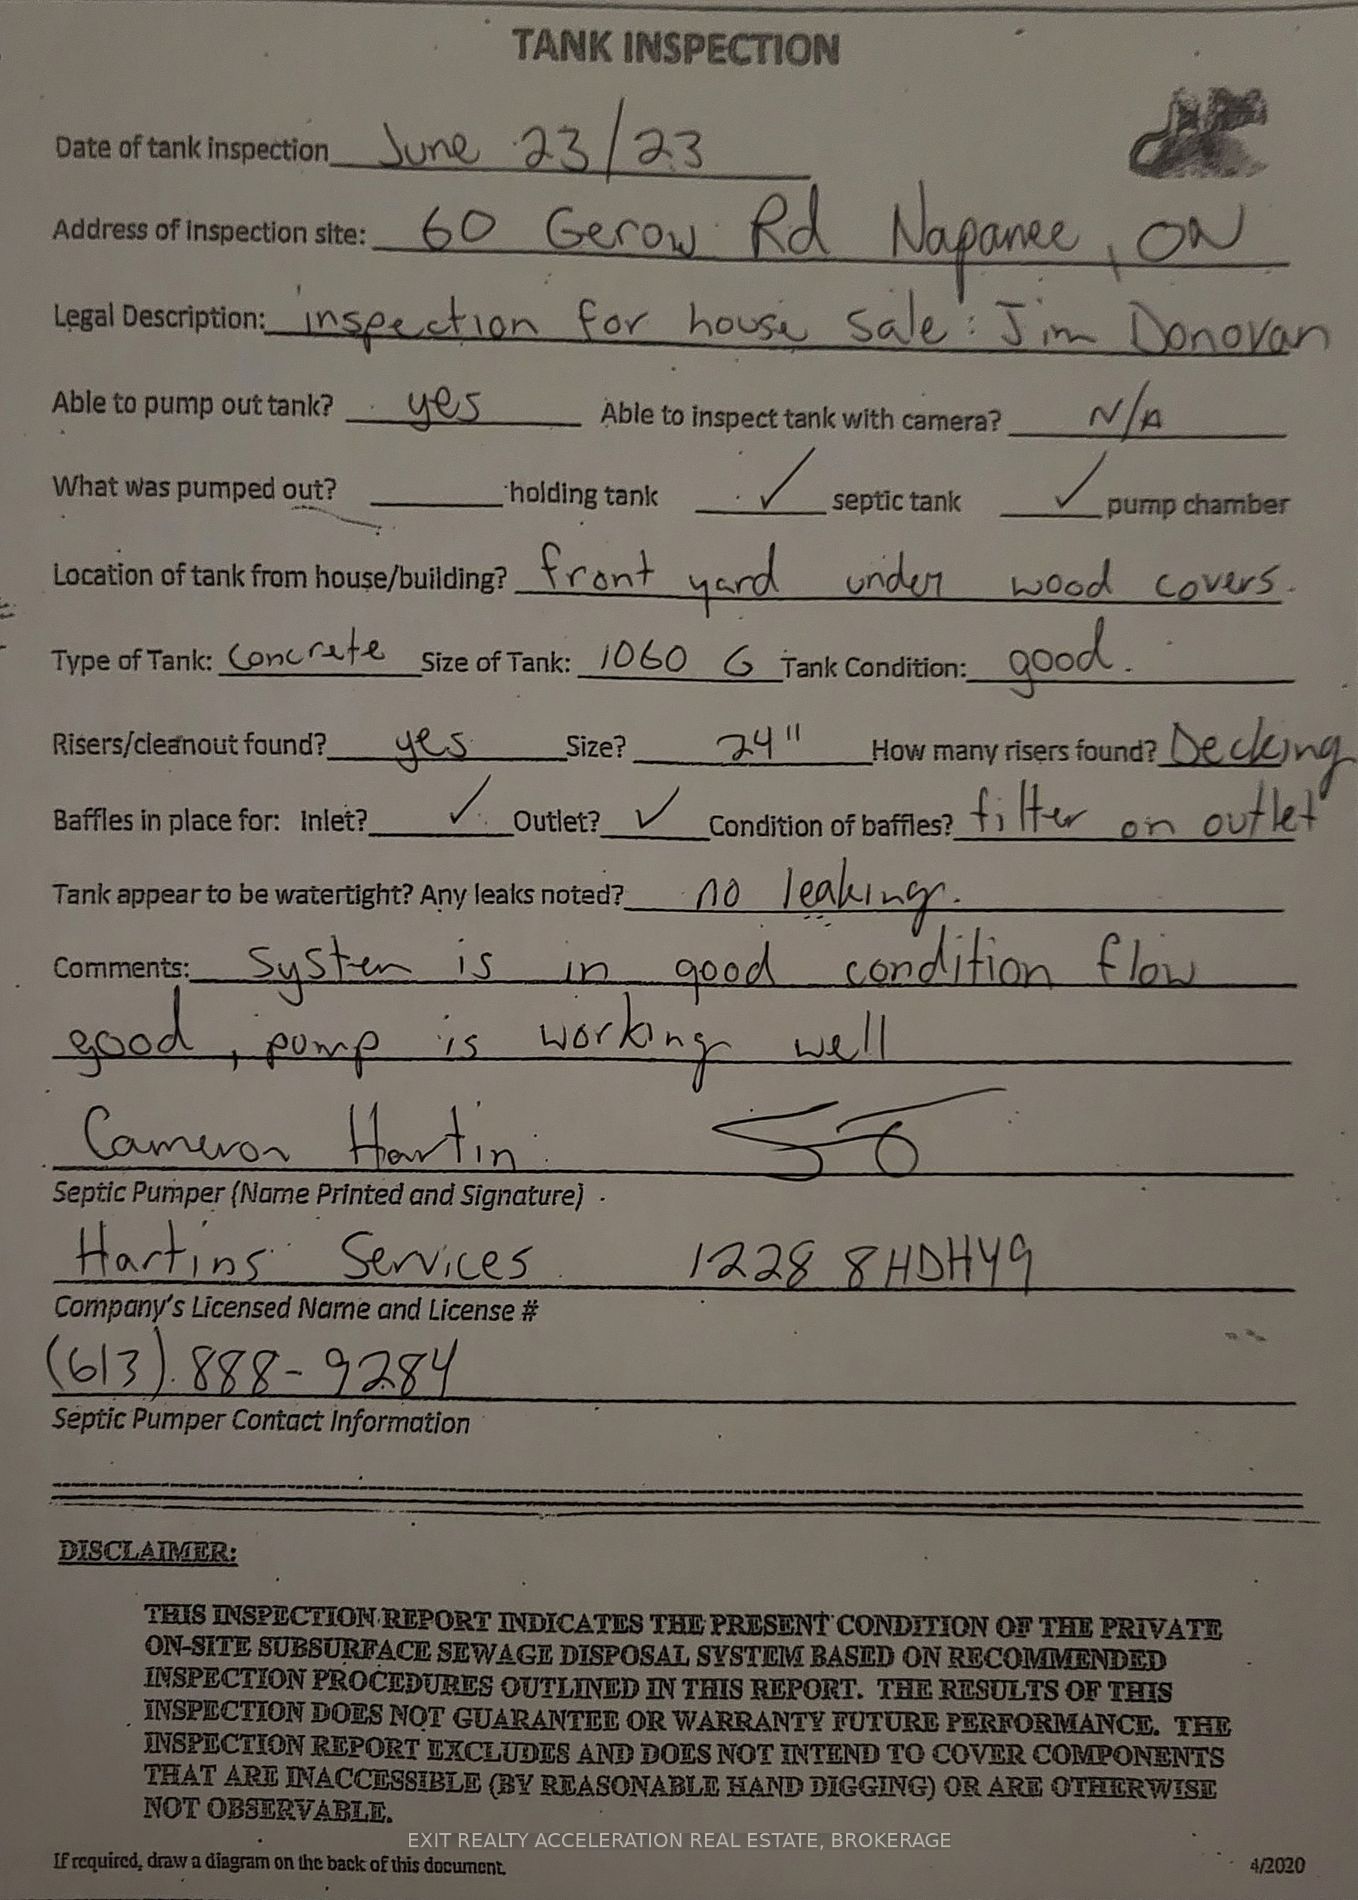 TANK INSPECTION
Date of tank inspection June 23/23
Address of inspection site: 60 Gerow Rd Napanee, ON
Legal Description: inspection for house sale: Jim Donovan
Able to pump out tank? yes Able to inspect tank with camera? N/A
What was pumped out? holding tank ✓ septic tank ✓ pump chamber
Location of tank from house/building? front yard under wood covers.
Type of Tank: concrete Size of Tank: 1060 G Tank Condition: good.
Risers/cleanout found? yes Size? 24" How many risers found? Decking
Baffles in place for: Inlet? ✓ Outlet? ✓ Condition of baffles? filter on outlet
Tank appear to be watertight? Any leaks noted? no leaking.
Comments: System is in good condition flow
good, pump is working well
Cameron Hartin
Septic Pumper (Name Printed and Signature)
Hartins Services 1228 8HDHY9
Company's Licensed Name and License #
(613) 888-9284
Septic Pumper Contact Information
DISCLAIMER:
THIS INSPECTION REPORT INDICATES THE PRESENT CONDITION OF THE PRIVATE
ON-SITE SUBSURFACE SEWAGE DISPOSAL SYSTEM BASED ON RECOMMENDED
INSPECTION PROCEDURES OUTLINED IN THIS REPORT. THE RESULTS OF THIS
INSPECTION DOES NOT GUARANTEE OR WARRANTY FUTURE PERFORMANCE. THE
INSPECTION REPORT EXCLUDES AND DOES NOT INTEND TO COVER COMPONENTS
THAT ARE INACCESSIBLE (BY REASONABLE HAND DIGGING) OR ARE OTHERWISE
NOT OBSERVABLE.
EXIT REALTY ACCELERATION REAL ESTATE, BROKERAGE
If required, draw a diagram on the back of this document. 4/2020